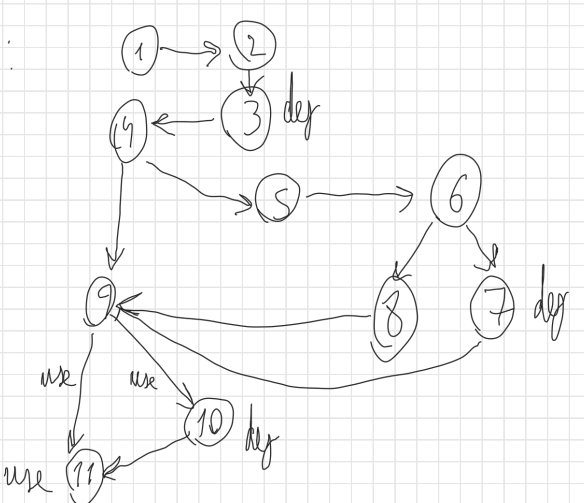 1 2
3 def
4
5 6
9 8 7 def
use use
10 def
use 11